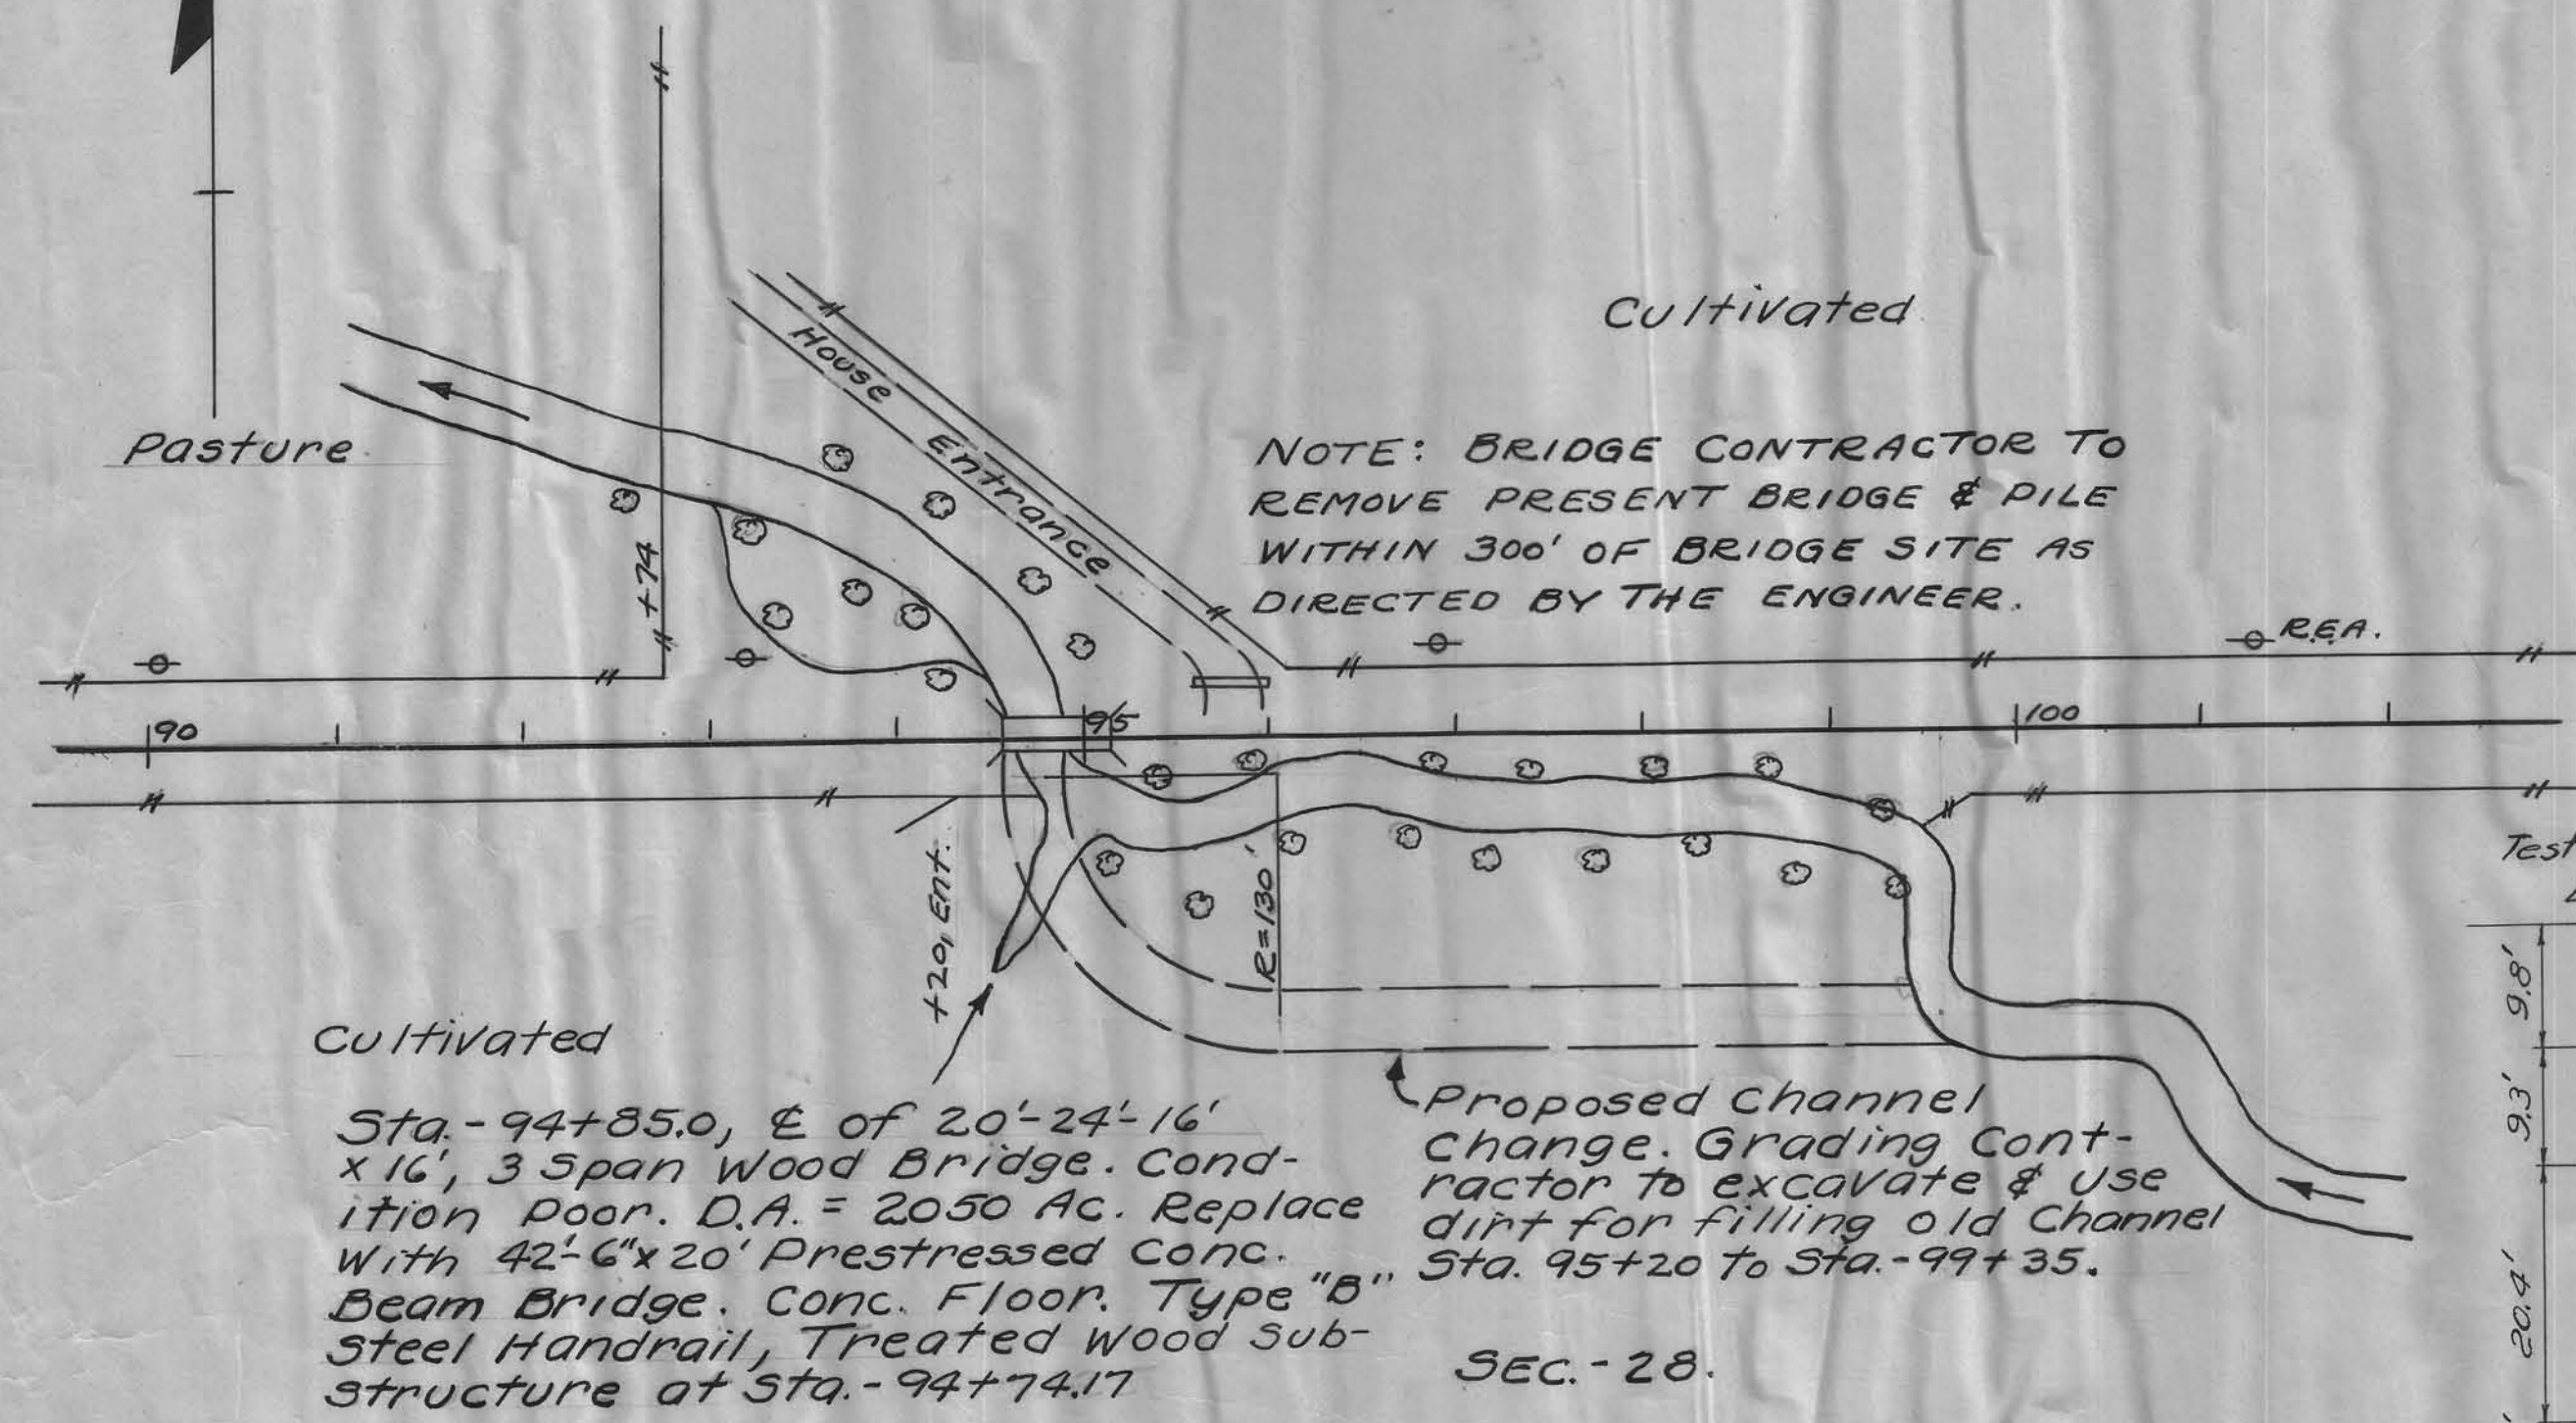 Cultivated
House Entrance
Pasture
NOTE: BRIDGE CONTRACTOR TO
REMOVE PRESENT BRIDGE & PILE
WITHIN 300' OF BRIDGE SITE AS
DIRECTED BY THE ENGINEER.
+74
R.E.A.
90
95
100
+20, Ent.
R=130'
Test
9.8'
9.3'
20.4'
Cultivated
Sta.-94+85.0, ℄ of 20'-24'-16'
x 16', 3 Span Wood Bridge. Cond-
ition Poor. D.A. = 2050 Ac. Replace
With 42'-6"x 20' Prestressed Conc.
Beam Bridge. Conc. Floor. Type "B"
Steel Handrail, Treated Wood Sub-
structure at Sta.-94+74.17
Proposed Channel
Change. Grading Cont-
ractor to excavate & use
dirt for filling old Channel
Sta. 95+20 to Sta.-99+35.
SEC.-28.